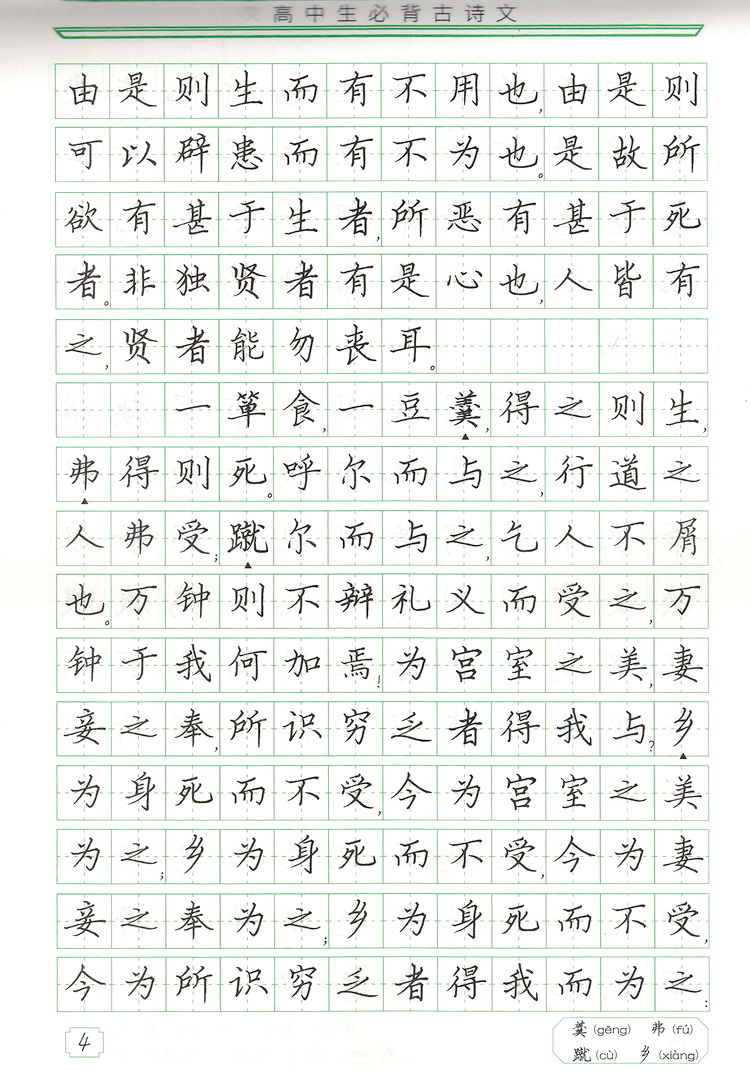 高中生必背古诗文
由是则生而有不用也,由是则
可以辟患而有不为也。是故所
欲有甚于生者,所恶有甚于死
者。非独贤者有是心也,人皆有
之,贤者能勿丧耳。
一箪食,一豆羹,得之则生,
弗得则死。呼尔而与之,行道之
人弗受;蹴尔而与之,乞人不屑
也。万钟则不辩礼义而受之,万
钟于我何加焉!为宫室之美,妻
妾之奉,所识穷乏者得我与?乡
为身死而不受,今为宫室之美
为之;乡为身死而不受,今为妻
妾之奉为之;乡为身死而不受,
今为所识穷乏者得我而为之:
4
羹(gēng) 弗(fú)
蹴(cù) 乡(xiàng)